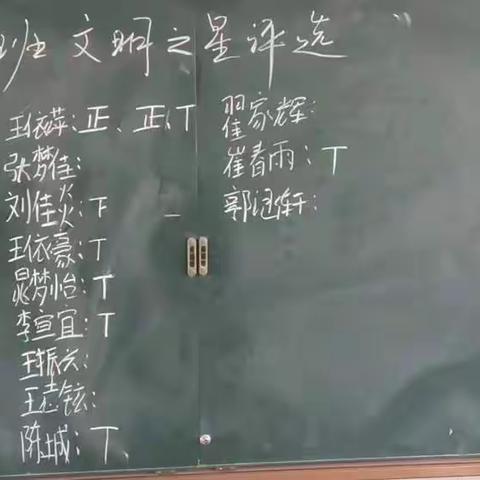 班 文明之星评选 "
王依萍:正、正、丅
张梦佳:
刘佳炎:下
王依豪:丅
晁梦怡:丅
李宣宜:丅
王振六:
王志铉:
陈城:丅、
翟家辉:
崔春雨:丅
郭涵轩: